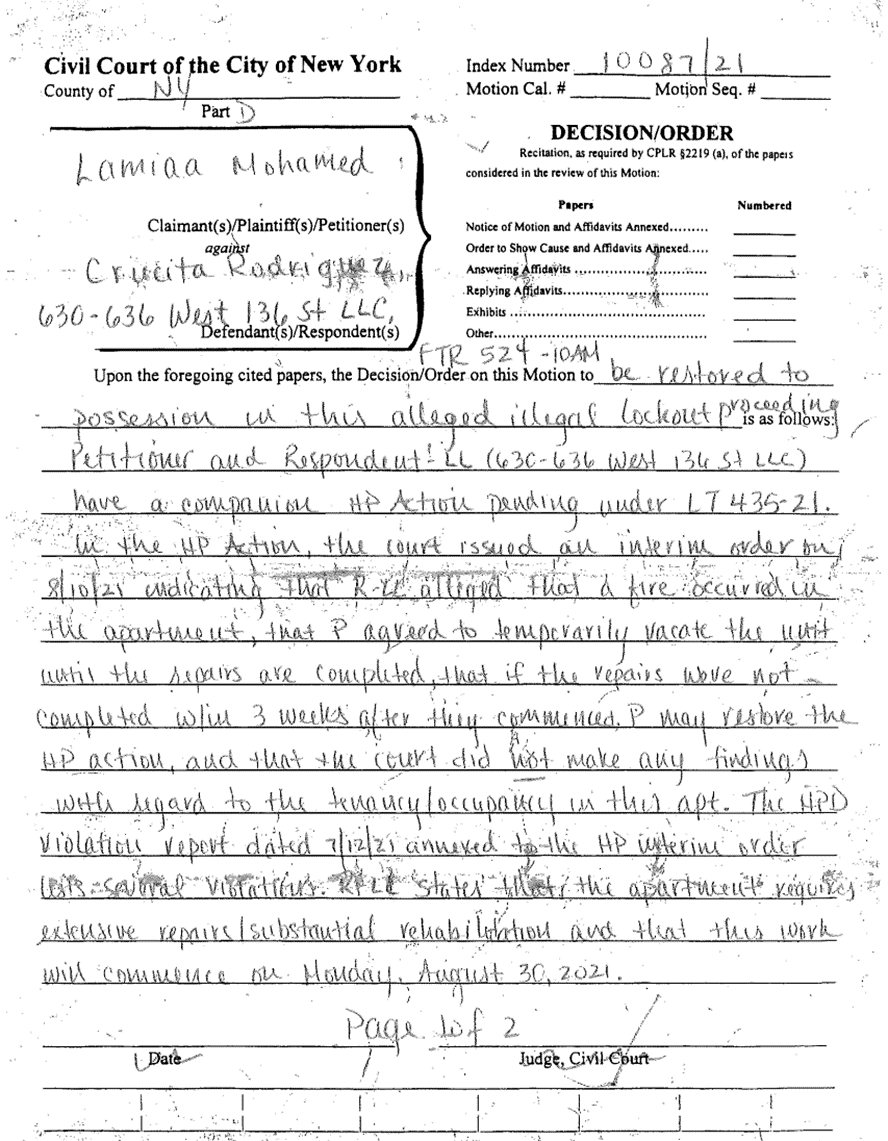 Civil Court of the City of New York
County of NY
Part D
Index Number 10087/21
Motion Cal. # Motion Seq. #
Lamiaa Mohamed
Claimant(s)/Plaintiff(s)/Petitioner(s)
against
Crucita Rodriguez,
630-636 West 136 St LLC,
Defendant(s)/Respondent(s)
DECISION/ORDER
Recitation, as required by CPLR §2219 (a), of the papers
considered in the review of this Motion:
Papers Numbered
Notice of Motion and Affidavits Annexed.........
Order to Show Cause and Affidavits Annexed.....
Answering Affidavits ........................
Replying Affidavits...........................
Exhibits .......................................
Other...........................................
FTR 524 - 10AM
Upon the foregoing cited papers, the Decision/Order on this Motion to be restored to
possession in this alleged illegal lockout proceeding
is as follows:
Petitioner and Respondent-LL (630-636 West 136 St LLC)
have a companion HP Action pending under LT 435-21.
In the HP Action, the court issued an interim order on
8/10/21 indicating that R-LL alleged that a fire occurred in
the apartment, that P agreed to temporarily vacate the unit
until the repairs are completed, that if the repairs were not
completed w/in 3 weeks after they commenced, P may restore the
HP action, and that the court did not make any findings
with regard to the tenancy/occupancy in this apt. The HPD
violation report dated 7/12/21 annexed to the HP interim order
lists several violations. R-LL states that the apartment requires
extensive repairs/substantial rehabilitation and that this work
will commence on Monday, August 30, 2021.
Page 1 of 2
Date Judge, Civil Court